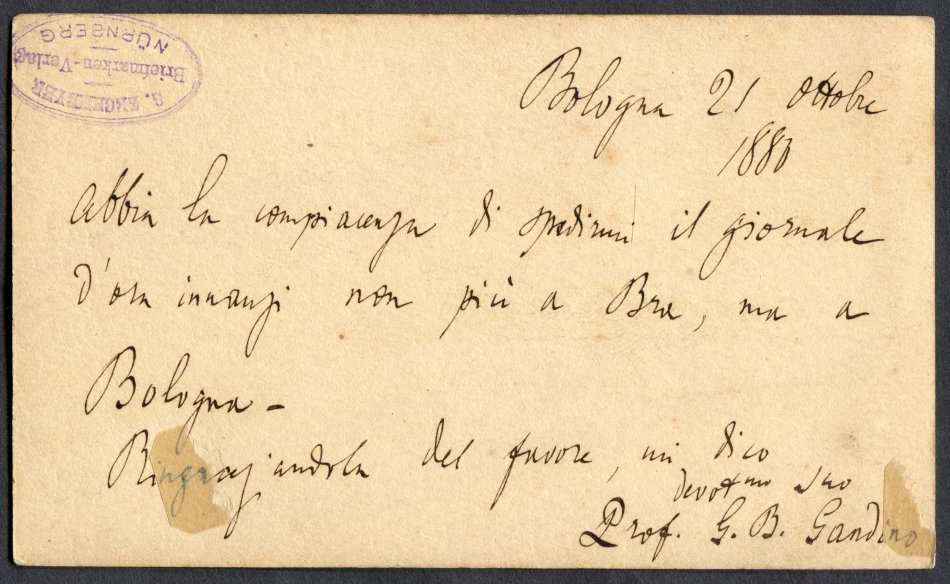 A. ZECHMEYER
Briefmarken-Verlag
NÜRNBERG
Bologna 21 Ottobre
1880
Abbia la compiacenza di spedirmi il giornale
d'ora innanzi non più a Bra, ma a
Bologna -
Ringraziandola del favore, mi dico
devotmo suo
Prof. G. B. Gandino